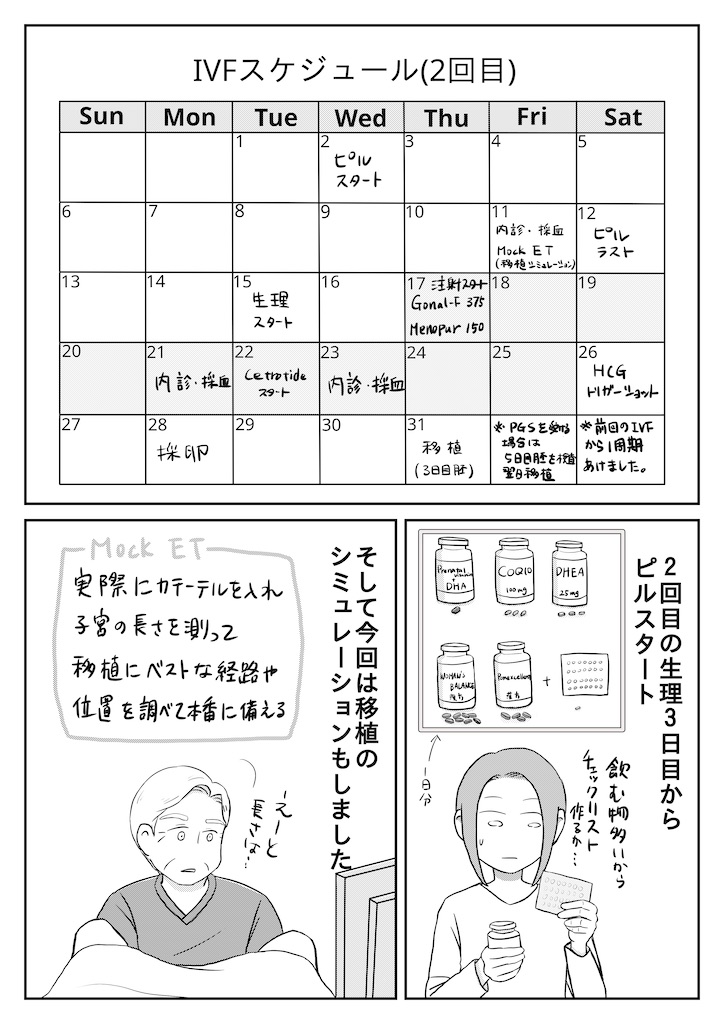 IVFスケジュール(2回目)
Sun Mon Tue Wed Thu Fri Sat
1 2 3 4 5
ピル
スタート
6 7 8 9 10 11 12
内診・採血
Mock ET
(移植シミュレーション)
ピル
ラスト
13 14 15 16 17 18 19
生理
スタート
注射スタート
Gonal-F 375
Menopur 150
20 21 22 23 24 25 26
内診・採血
Cetrotide
スタート
内診・採血
HCG
トリガーショット
27 28 29 30 31
採卵
移植
(3日目胚)
※PGSを受ける
場合は
5日目胚を検査
翌日移植
※前回のIVF
から1周期
あけました。
2回目の生理3日目から
ピルスタート
Prenatal
vitamin
DHA
CoQ10
100mg
DHEA
25mg
WOMAN'S
BALANCE
+
1日分
飲む物多いから
チェックリスト
作るか…
そして今回は移植の
シミュレーションもしました
Mock ET
実際にカテーテルを入れ
子宮の長さを測って
移植にベストな経路や
位置を調べて本番に備える
えーと
長さは…